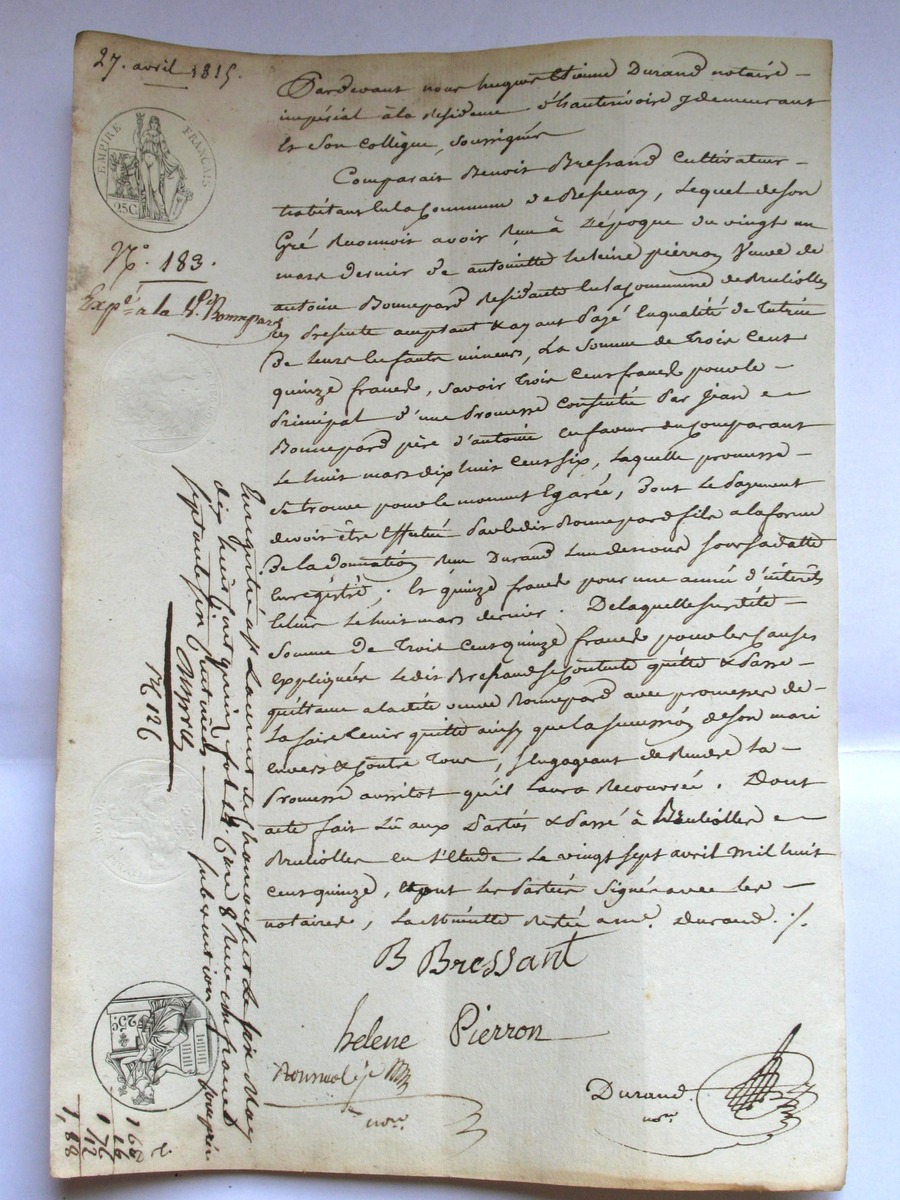 27. avril 1815.
EMPIRE FRANÇAIS
25C.
N.° 183.
Exp.é a la d.e Bonnepard
Pardevant nous hugues Etienne Durand notaire
impérial à la résidence d'hauterivoire y demeurant
et Son Collègue, soussignés
Comparait Benoit Bressand Cultivateur
habitant en la Commune de Bessenay, lequel de son
Gré Reconnoit avoir Reçu à L'époque du vingt un
mars dernier de antoinette heleine pierron Veuve de
antoine Bonnepard Residante en la Commune de Brulioles
ici présente acceptant & ayant Payé En qualité de Tutrice
De leurs Enfants mineurs, La Somme de Trois Cent
quinze francs, savoir Trois Cent francs pour le
Principal d'une Promesse Consentie Par Jean
Bonnepard père d'antoine en faveur du Comparant
Le huit mars dix huit Cent Six, Laquelle promesse
se trouve pour le moment Egarée, Dont le Payement
devoit être Effectué Par ledit Bonnepard fils a la forme
De la Donnation Reçu Durand L'un de nous sous sa datte
Enregistrée; Et quinze francs pour une année d'intérêts
Echue le huit mars dernier. De laquelle susdite
Somme de Trois Cent quinze francs pour les Causes
Expliquées Ledit Bressand se Contente quitte & Passe
quittance a la dite veuve Bonnepard avec promesse de
La faire Tenir quitte ainsy que la succession de son mari
Envers & Contre Tous, s'Engageant de Rendre La
Promesse aussitot qu'il L'aura Recouvrée. Dont
acte fait Lû aux Parties & Passé à Brulioles
Brulioles en L'Etude Le vingt sept avril Mil huit
Cent quinze, et ont les Parties Signé avec les
notaires, La Minute Restée a me. Durand. /.
B Bressant
helene Pierron
nore.
Durand
nore.
Enregistré à St Laurent de Chamousset le six May
dix huit cent quinze fol. 14 Case 8 Reçu un franc
25C.
1 68
16
1 76
12
1, 88